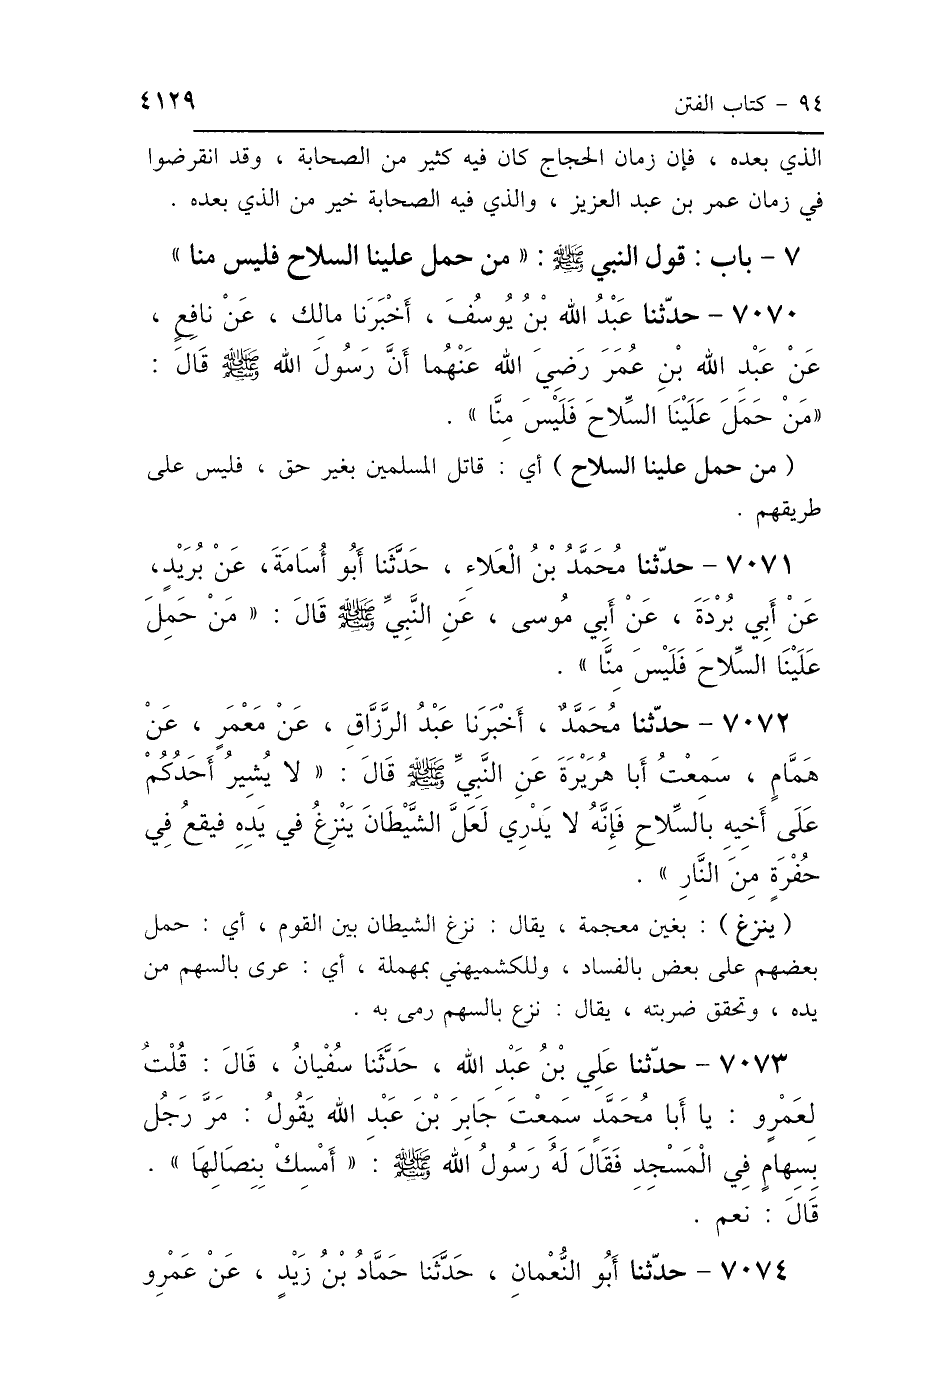 ٩٤ – كتاب الفتن ٤١٢٩
الذي بعده ، فإن زمان الحجاج كان فيه كثير من الصحابة ، وقد انقرضوا
في زمان عمر بن عبد العزيز ، والذي فيه الصحابة خير من الذي بعده .
٧ – باب : قول النبي ﷺ : « من حمل علينا السلاح فليس منا »
٧٠٧٠ – حدّثنا عَبْدُ الله بْنُ يُوسُفَ ، أَخْبَرَنا مالك ، عَنْ نافِعٍ ،
عَنْ عَبْدِ الله بْنِ عُمَرَ رَضِيَ الله عَنْهُما أَنَّ رَسُولَ الله ﷺ قَالَ :
«مَنْ حَمَلَ عَلَيْنَا السِّلاحَ فَلَيْسَ مِنَّا » .
( من حمل علينا السلاح ) أي : قاتل المسلمين بغير حق ، فليس على
طريقهم .
٧٠٧١ – حدّثنا مُحَمَّدُ بْنُ الْعَلاءِ ، حَدَّثَنا أَبُو أُسَامَةَ، عَنْ بُرَيْدٍ،
عَنْ أَبِي بُرْدَةَ ، عَنْ أَبِي مُوسى ، عَنِ النَّبِيِّ ﷺ قَالَ : « مَنْ حَمِلَ
عَلَيْنَا السِّلاحَ فَلَيْسَ مِنَّا » .
٧٠٧٢ – حدّثنا مُحَمَّدٌ ، أَخْبَرَنا عَبْدُ الرَّزَّاقِ ، عَنْ مَعْمَرٍ ، عَنْ
هَمَّامٍ ، سَمِعْتُ أبا هُرَيْرَةَ عَنِ النَّبِيِّ ﷺ قَالَ : « لا يُشِيرُ أَحَدُكُمْ
عَلَى أَخِيهِ بالسِّلاحِ فَإِنَّهُ لا يَدْرِي لَعَلَّ الشَّيْطَانَ يَنْزِغُ في يَدِهِ فيقعُ فِي
حُفْرَةٍ مِنَ النَّارِ » .
( ينزغ ) : بغين معجمة ، يقال : نزغ الشيطان بين القوم ، أي : حمل
بعضهم على بعض بالفساد ، وللكشميهني بمهملة ، أي : عرى بالسهم من
يده ، وتحقق ضربته ، يقال : نزع بالسهم رمى به .
٧٠٧٣ – حدّثنا عَلي بْنُ عَبْدِ الله ، حَدَّثَنا سُفْيانُ ، قَالَ : قُلْتُ
لِعَمْرٍو : يا أبا مُحَمَّدٍ سَمِعْتَ جَابِرَ بْنَ عَبْدِ الله يَقُولُ : مَرَّ رَجُل
بِسِهامٍ فِي الْمَسْجِدِ فَقَالَ لَهُ رَسُولُ الله ﷺ : « أَمْسِكْ بِنِصَالِهَا » .
قَالَ : نعم .
٧٠٧٤ – حدّثنا أَبُو النُّعْمانِ ، حَدَّثَنا حَمَّادُ بْنُ زَيْدٍ ، عَنْ عَمْرِو